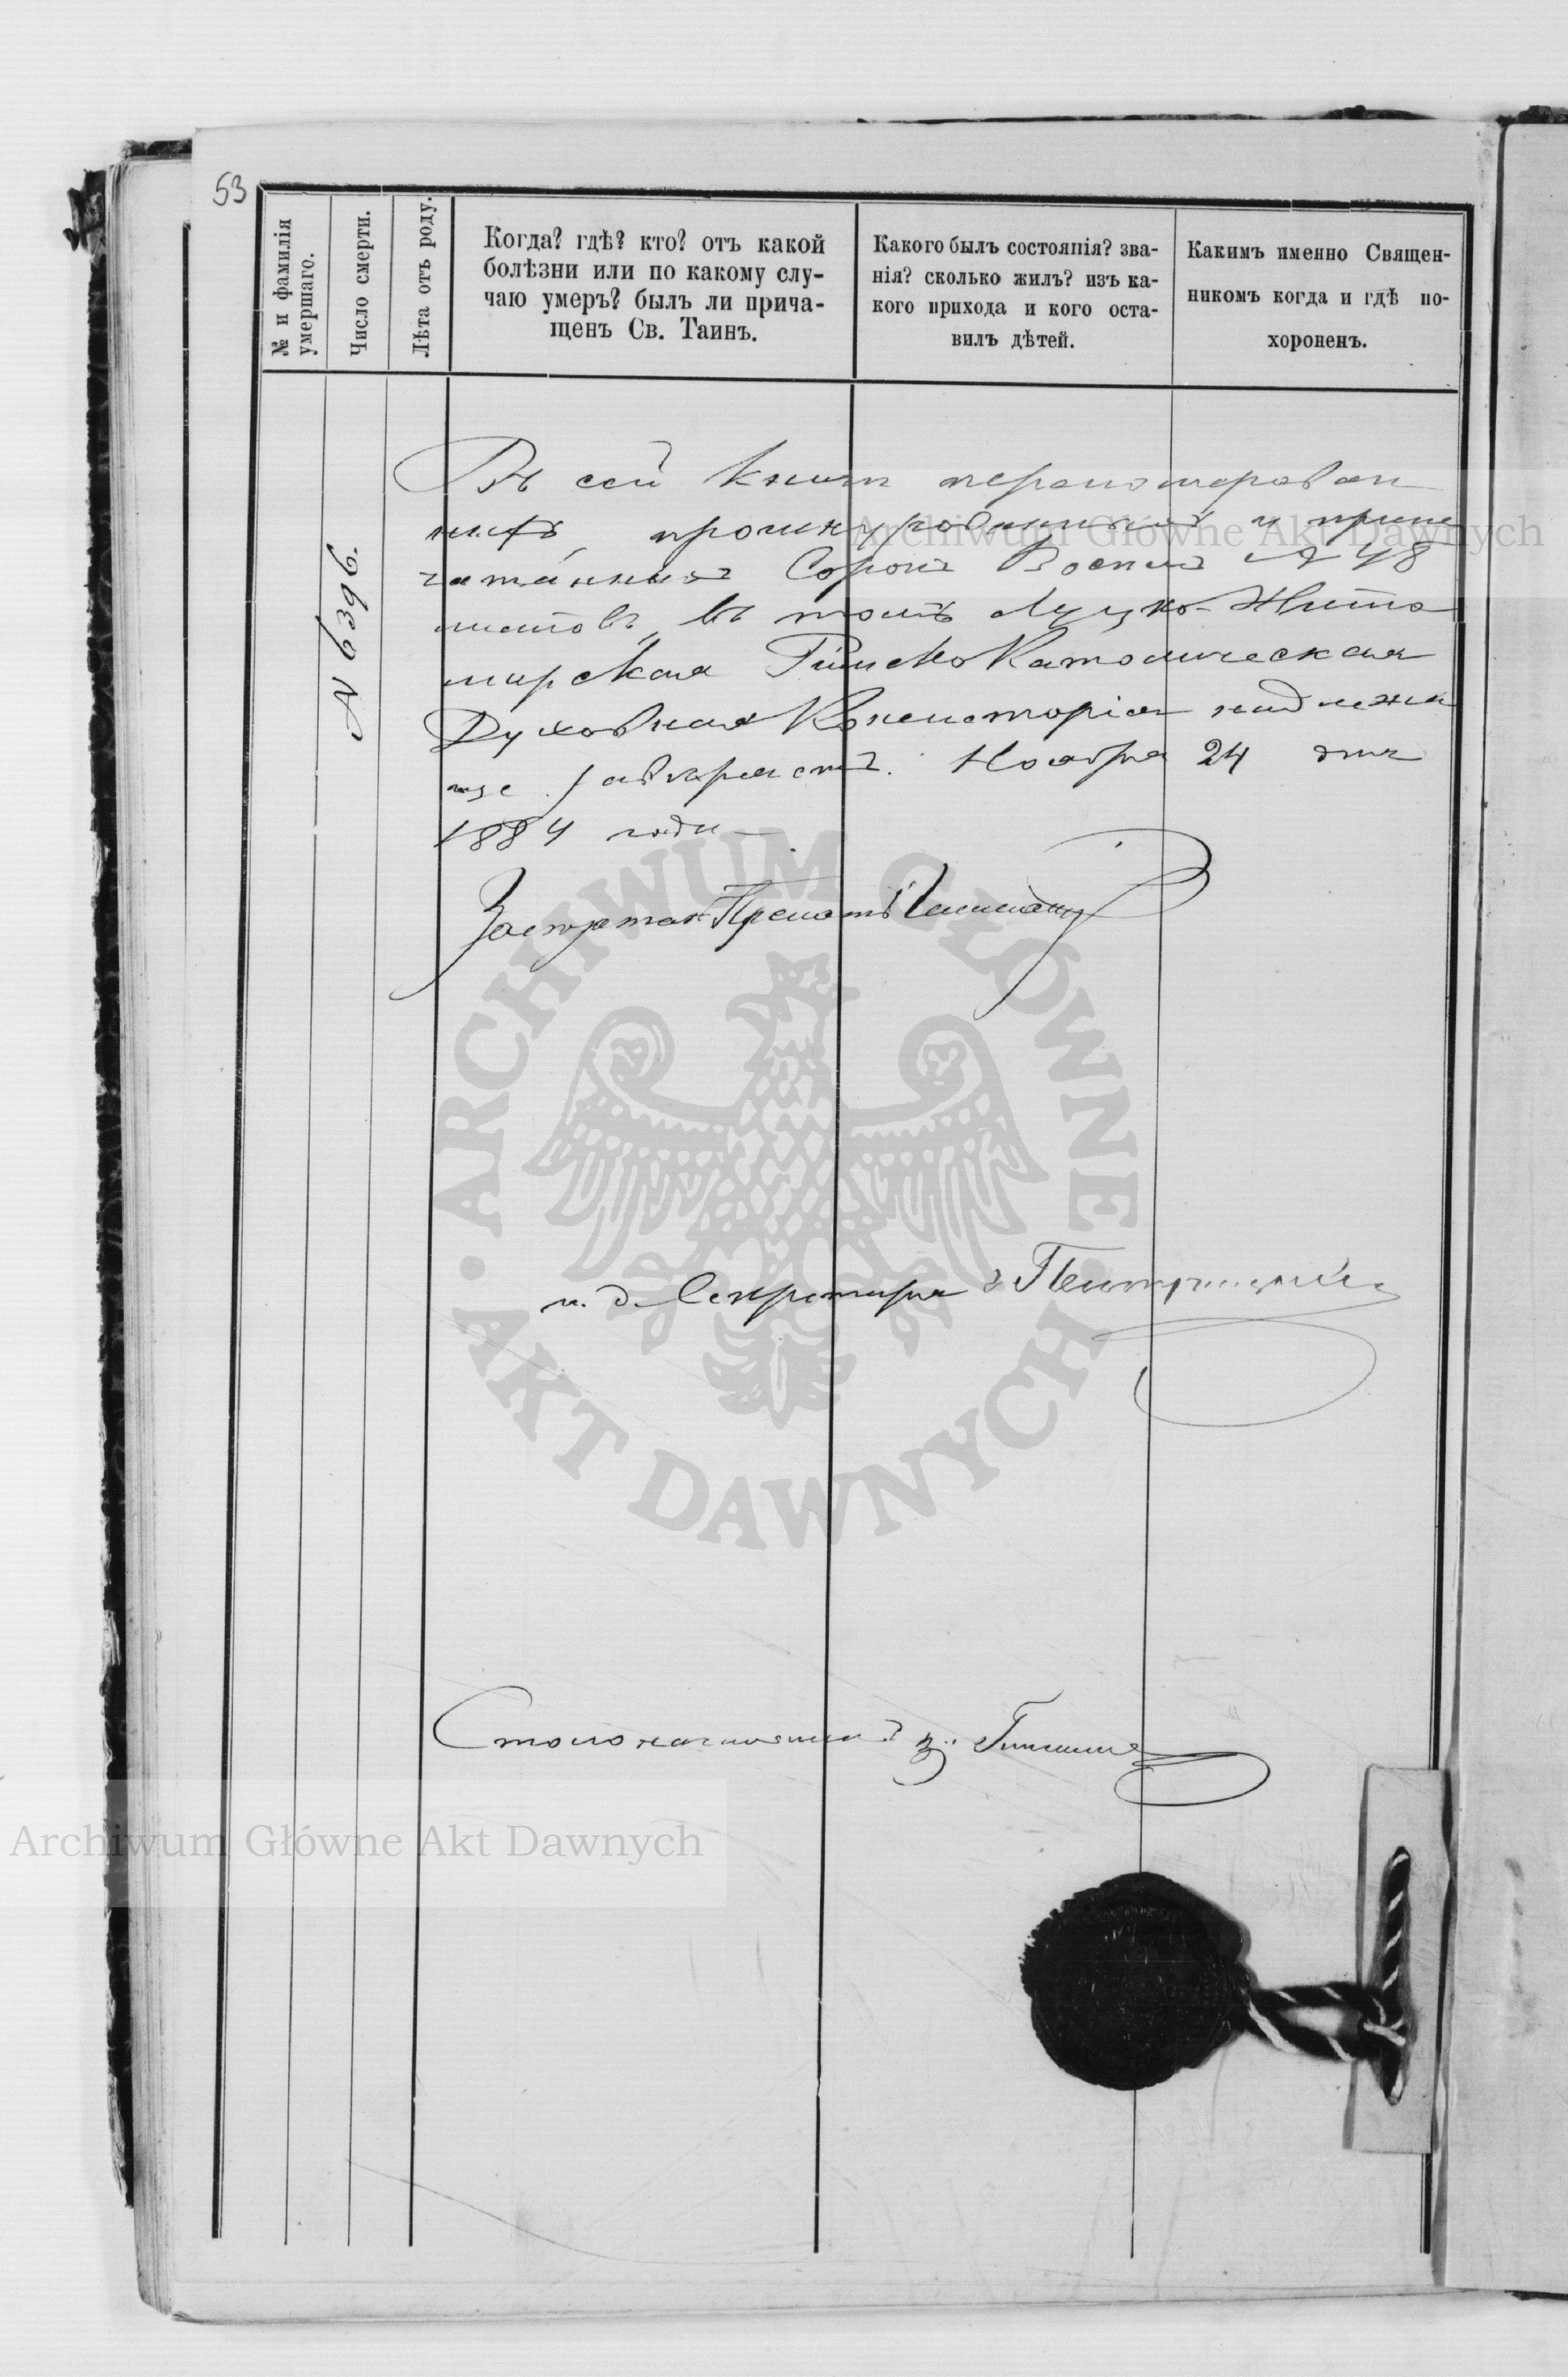 53
№ и фамилія
умершаго.
Число смерти.
Лѣта отъ роду.
Когда? гдѣ? кто? отъ какой
болѣзни или по какому слу-
чаю умеръ? былъ ли прича-
щенъ Св. Таинъ.
Какого былъ состоянія? зва-
нія? сколько жилъ? изъ ка-
кого прихода и кого оста-
вилъ дѣтей.
Какимъ именно Священ-
никомъ когда и гдѣ по-
хороненъ.
№ 6396.
Въ сей книгѣ перенумерован
ныхъ, прошнурованныхъ и припе
чатанныхъ Сорокъ Восемь № 48
листовъ, въ томъ Луцко-Жито
мирская Римско Католическая
Духовная Консисторія надлежа
ще удостовѣряетъ. Ноября 24 дня
1884 года
Прелатъ
и. д. Секретаря
Столоначальникъ
Archiwum Główne Akt Dawnych
ARCHIWUM GŁÓWNE
AKT DAWNYCH
Archiwum Główne Akt Dawnych